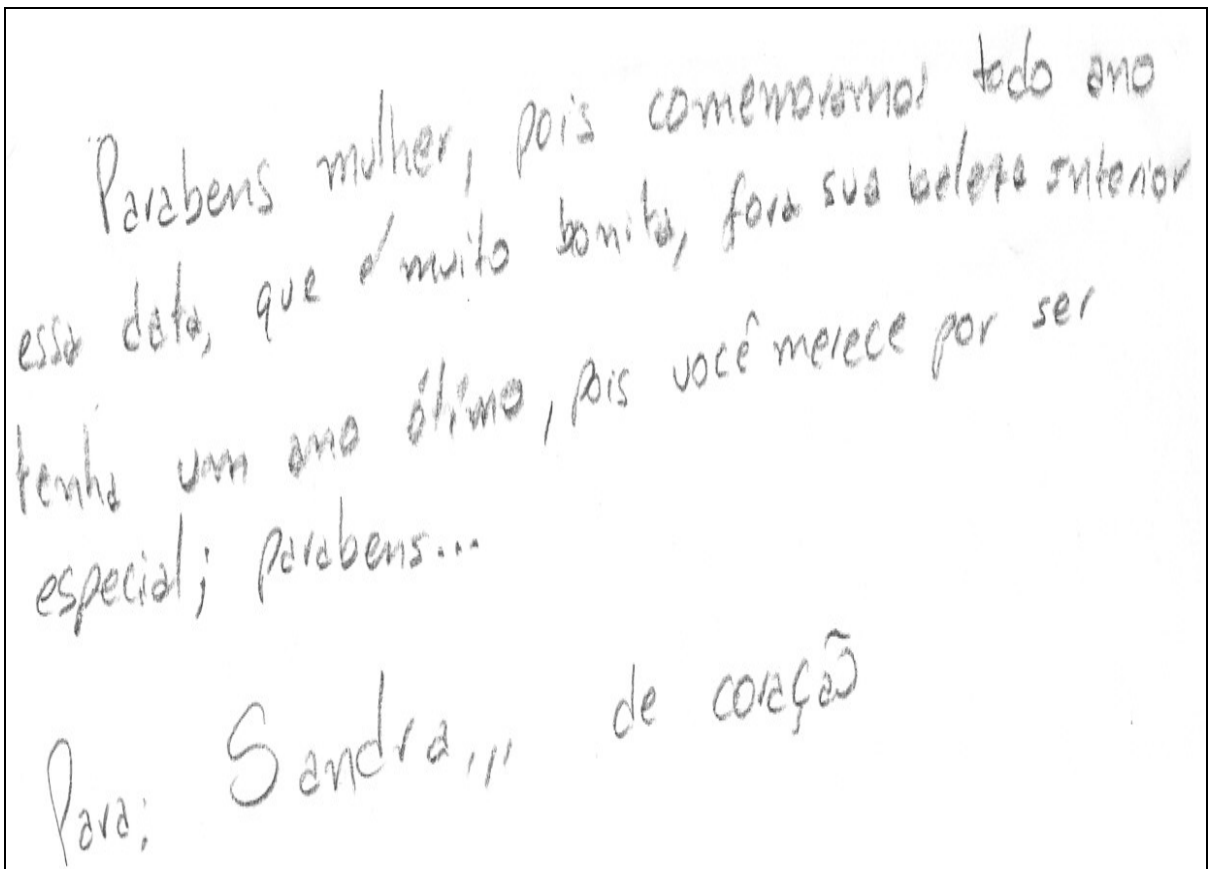 Parabens mulher, pois comemoramos todo ano
essa data, que é muito bonita, fora sua beleza interior
tenha um ano ótimo, pois você merece por ser
especial; parabens...
Para; Sandra,,, de coração